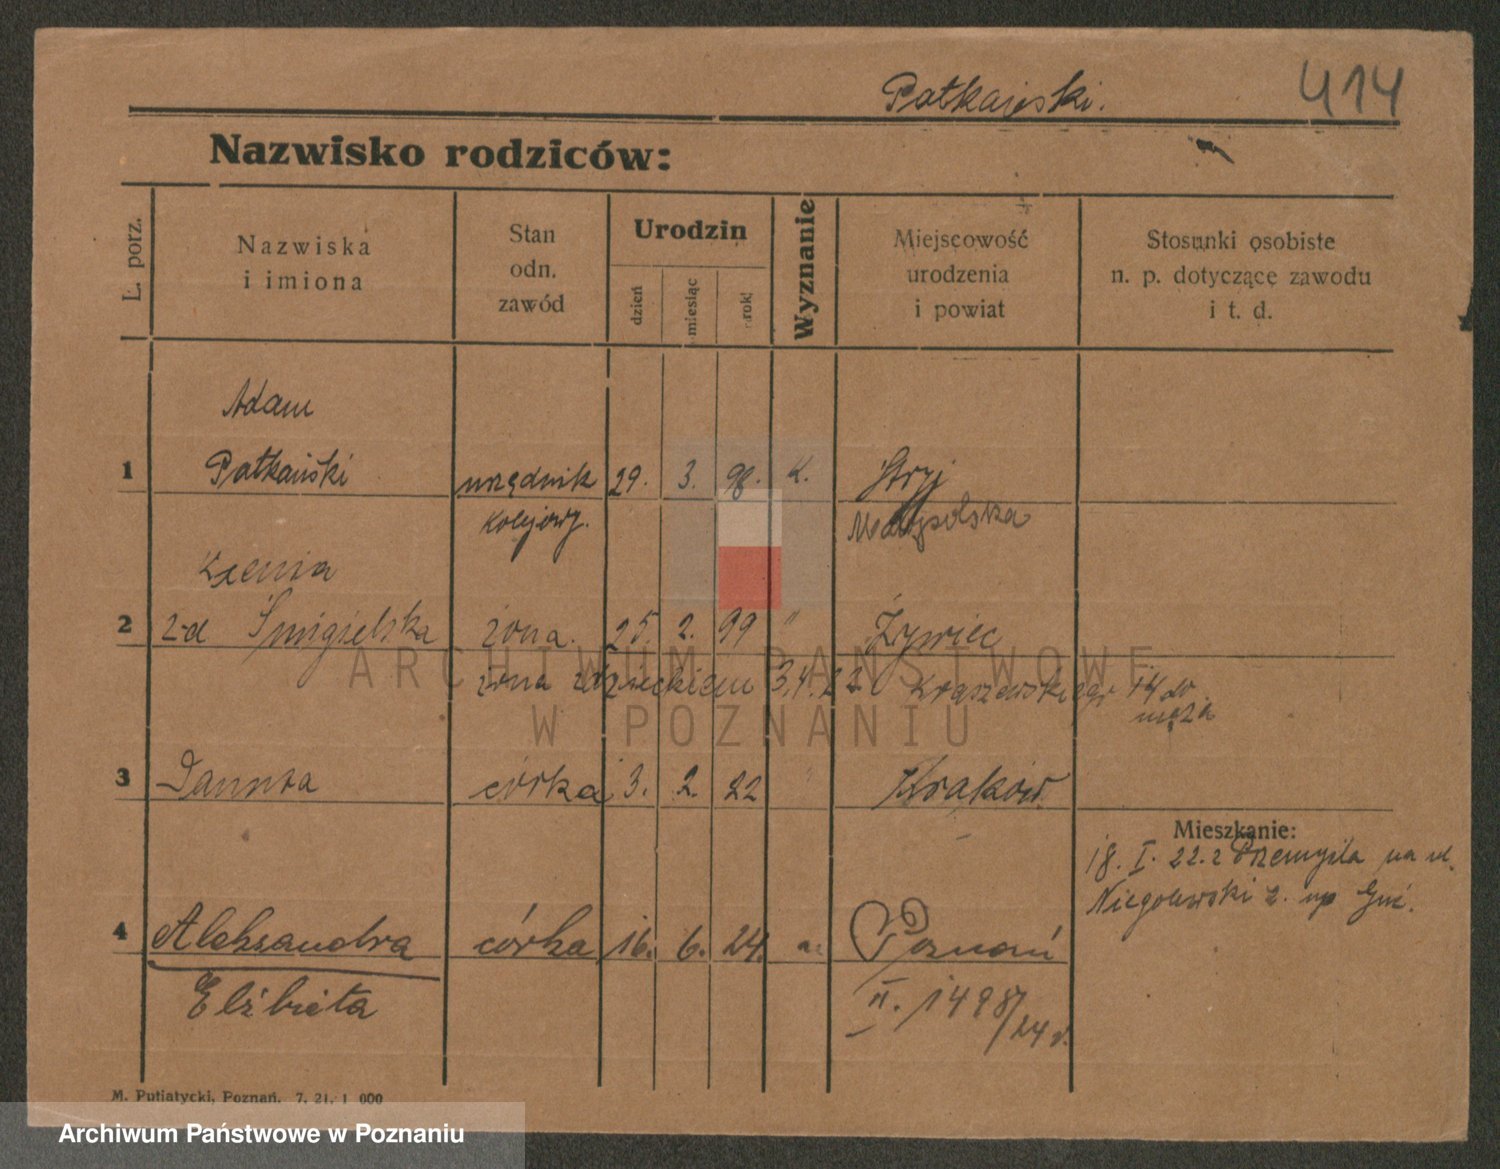 Patkański.
414
Nazwisko rodziców:
L. porz.
Nazwiska
i imiona
Stan
odn.
zawód
Urodzin
dzień
miesiąc
rok
Wyznanie
Miejscowość
urodzenia
i powiat
Stosunki osobiste
n. p. dotyczące zawodu
i t. d.
Adam
1 Patkański urzędnik 29. 3. 98. K. Stryj
kolejowy. Małopolska
Xenia
2 z-d Śmigielska żona. 25. 2. 99 " Żywiec
żona z dzieckiem 3.4.22 Kraszewskiego 14 do
męża
3 Danuta córka 3. 2. 22 " Kraków
Mieszkanie:
18. I. 22. z Przemyśla na ul.
Niegolewski
4 Aleksandra córka 16. 6. 24. Poznań
Elżbieta II. 1498/24 r.
M. Putiatycki, Poznań. 7. 21. 1 000
ARCHIWUM PAŃSTWOWE
W POZNANIU
Archiwum Państwowe w Poznaniu